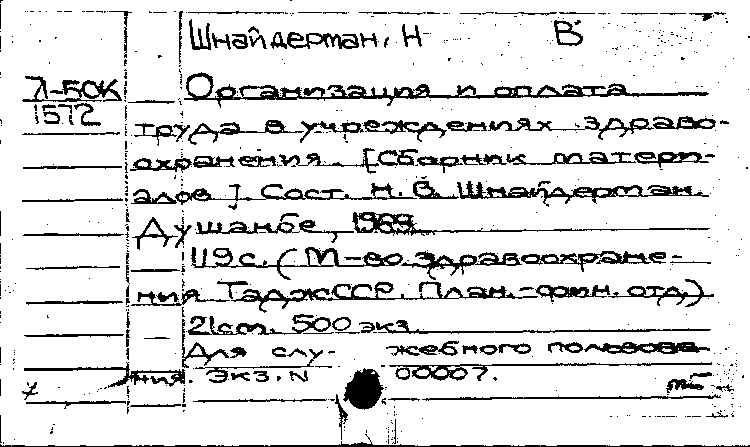 Шнайдерман, Н В
Л-БОК Организация и оплата
1572
труда в учреждениях здраво-
охранения. [Сборник матери-
алов]. Сост. Н.В. Шнайдерман.
Душанбе, 1969.
119 с. (М-во здравоохране-
ния ТаджССР. План.-фин. отд.)
21 cm. 500 экз.
Для слу- жебного пользова-
ния. Экз. N 00007.